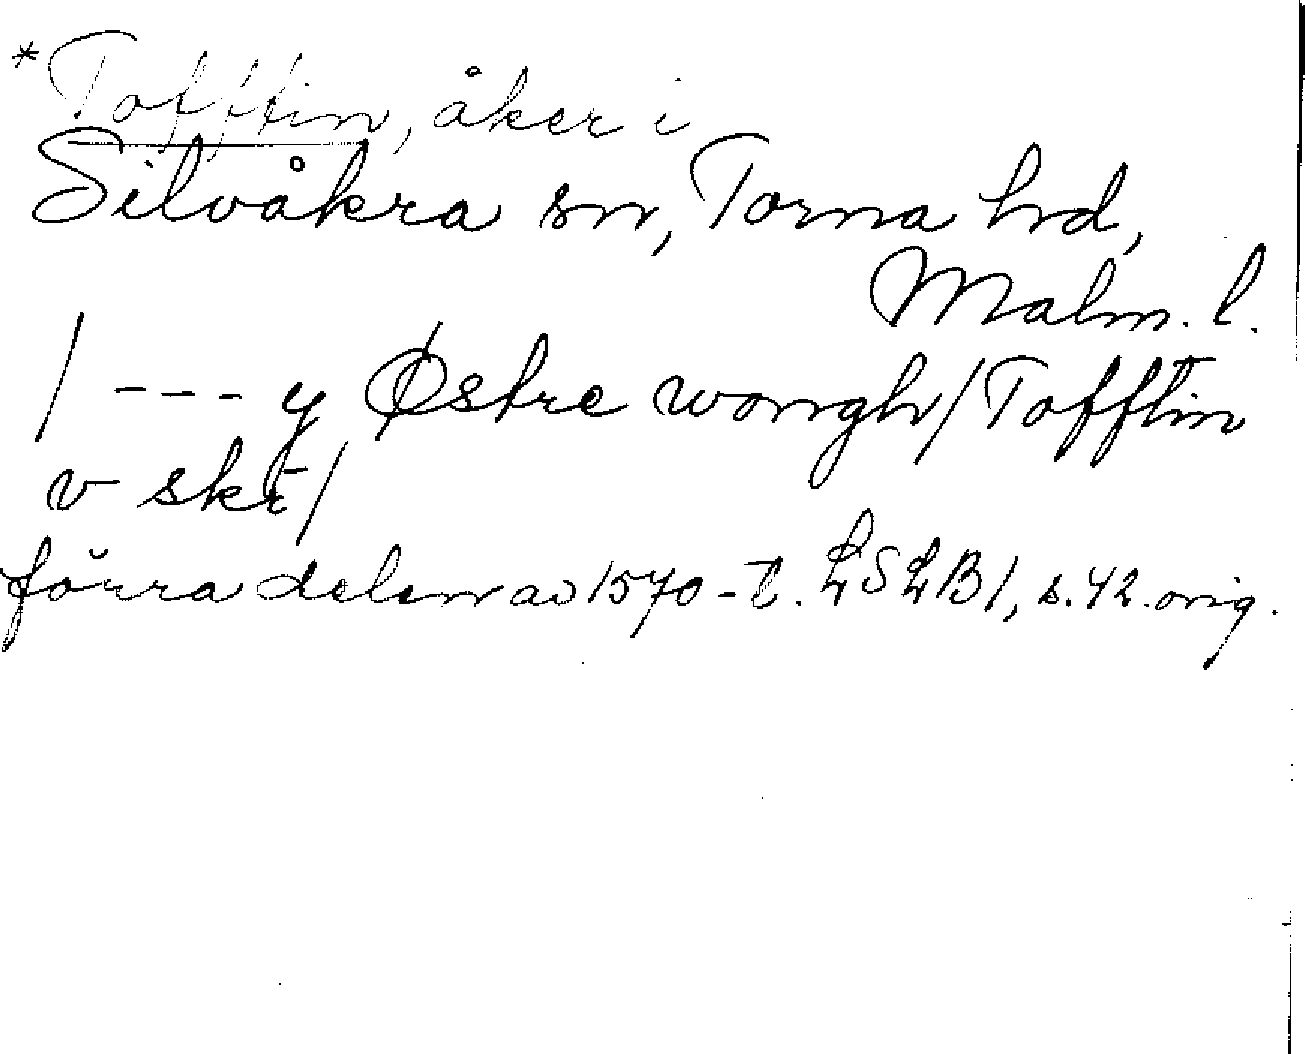 *Tofftin, åker i
Silvåkra sn, Torna hrd,
Malm. l.
/ --- y Østre wongh / Tofftin
v skr̄ /
förra delen av 1570-t. LSLB 1, s. 42. orig.